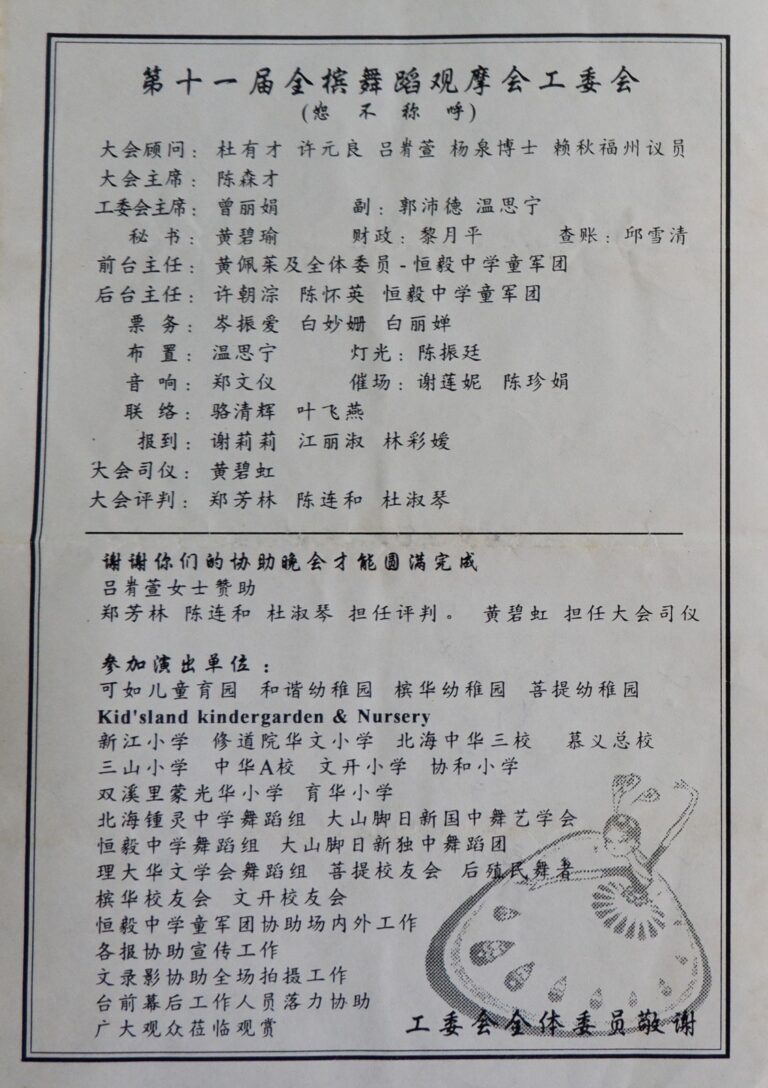 第十一届全槟舞蹈观摩会工委会
(恕 不 称 呼)
大会顾问：杜有才 许元良 吕岽萱 杨泉博士 赖秋福州议员
大会主席：陈森才
工委会主席：曾丽娟 副：郭沛德 温思宁
秘 书：黄碧瑜 财政：黎月平 查账：邱雪清
前台主任：黄佩茱及全体委员-恒毅中学童军团
后台主任：许朝淙 陈怀英 恒毅中学童军团
票 务：岑振爱 白妙姗 白丽婵
布 置：温思宁 灯光：陈振廷
音 响：郑文仪 催场：谢莲妮 陈珍娟
联 络：骆清辉 叶飞燕
报到：谢莉莉 江丽淑 林彩嫒
大会司仪：黄碧虹
大会评判：郑芳林 陈连和 杜淑琴
谢谢你们的协助晚会才能圆满完成
吕岽萱女士赞助
郑芳林 陈连和 杜淑琴 担任评判。 黄碧虹 担任大会司仪
参加演出单位：
可如儿童育园 和谐幼稚园 槟华幼稚园 菩提幼稚园
Kid'sland kindergarden & Nursery
新江小学 修道院华文小学 北海中华三校 慕义总校
三山小学 中华A校 文开小学 协和小学
双溪里蒙光华小学 育华小学
北海锺灵中学舞蹈组 大山脚日新国中舞艺学会
恒毅中学舞蹈组 大山脚日新独中舞蹈团
理大华文学会舞蹈组 菩提校友会 后殖民舞者
槟华校友会 文开校友会
恒毅中学童军团协助场内外工作
各报协助宣传工作
文录影协助全场拍摄工作
台前幕后工作人员落力协助
广大观众莅临观赏
工委会全体委员敬谢